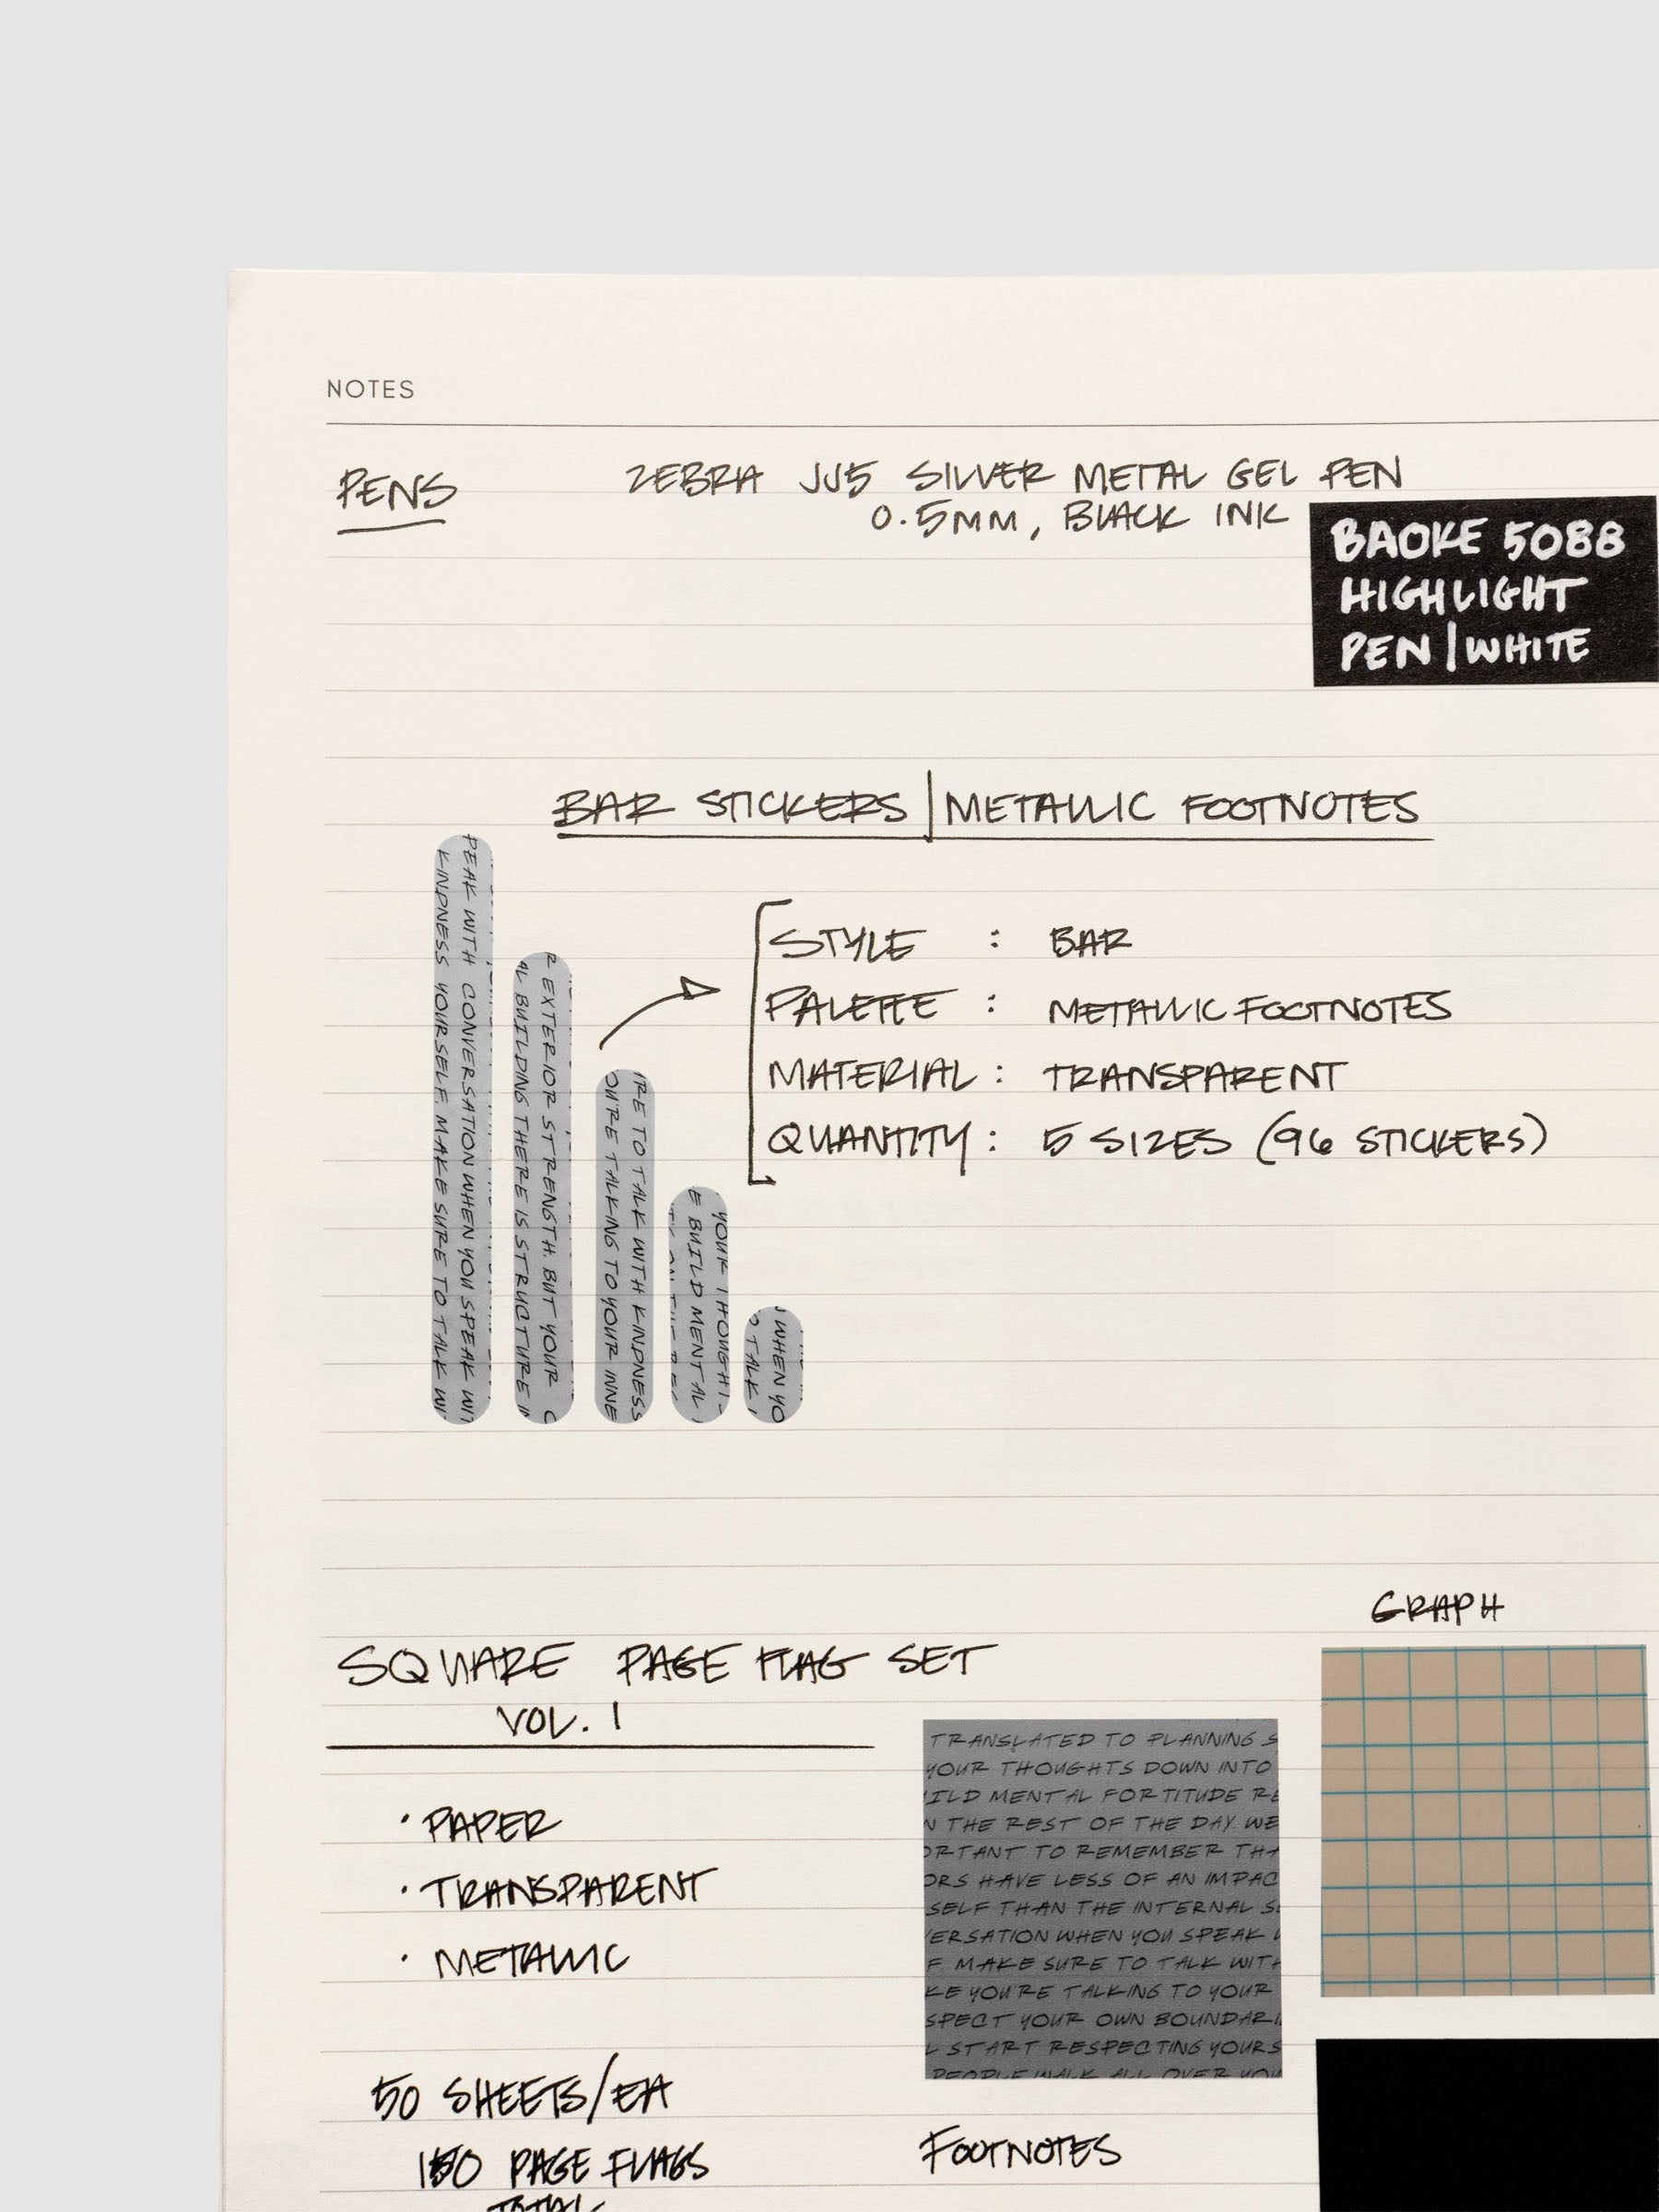 NOTES
PENS
ZEBRA JJ5 SILVER METAL GEL PEN
0.5MM, BLACK INK
BAOKE 5088
HIGHLIGHT
PEN | WHITE
BAR STICKERS | METALLIC FOOTNOTES
PEAK WITH CONVERSATION WHEN YOU SPEAK WIT
KINDNESS YOURSELF. MAKE SURE TO TALK WI
R EXTERIOR STRENGTH. BUT YOUR
AL BUILDING THERE IS STRUCTURE
RE TO TALK WITH KINDNESS
OU'RE TALKING TO YOUR INNE
YOUR THOUGHT
E BUILD MENTAL
WHEN YO
TALK
STYLE : BAR
PALETTE : METALLIC FOOTNOTES
MATERIAL : TRANSPARENT
QUANTITY : 5 SIZES (96 STICKERS)
GRAPH
SQUARE PAGE FLAG SET
VOL. 1
TRANSLATED TO PLANNING S
YOUR THOUGHTS DOWN INTO
ILD MENTAL FORTITUDE RE
N THE REST OF THE DAY. WE
ORTANT TO REMEMBER THA
ORS HAVE LESS OF AN IMPAC
SELF THAN THE INTERNAL S
ERSATION WHEN YOU SPEAK
F. MAKE SURE TO TALK WITH
KE YOU'RE TALKING TO YOUR
SPECT YOUR OWN BOUNDARI
L START RESPECTING YOURS
PEOPLE WALK ALL OVER YOU
· PAPER
· TRANSPARENT
· METALLIC
50 SHEETS/EA
150 PAGE FLAGS
TOTAL
FOOTNOTES